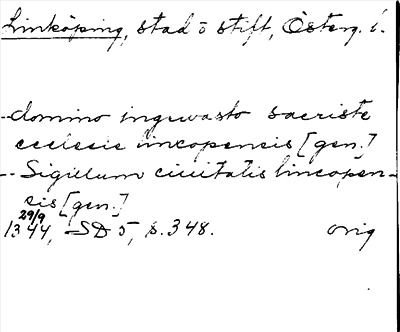 Linköping, stad o stift, Österg. l.
- domino ingwasto sacriste
ecclesie lincopensis [gen.]
-- Sigillum ciuitatis lincopen-
sis [gen.]
29/9
1344, SD 5, s. 348. orig